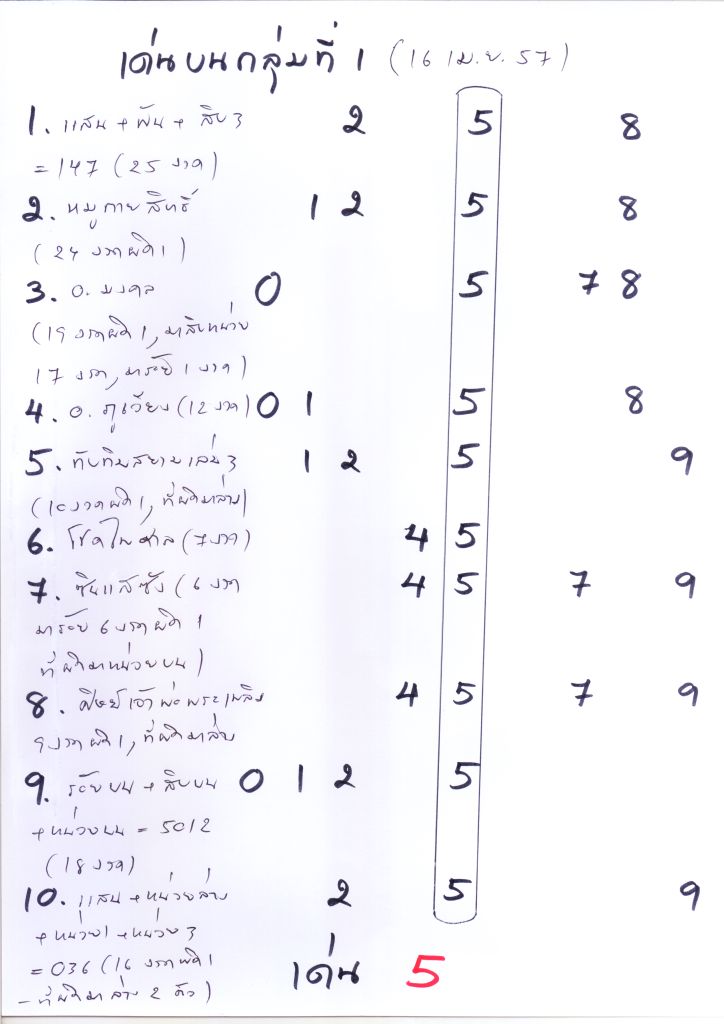 เด่นบนกลุ่มที่ 1 (16 เม.ย. 57)
1. แสน + พัน + สิบ 3 2 5 8
= 147 (25 งวด)
2. หมูกายสิทธิ์ 1 2 5 8
(24 งวดผิด 1)
3. อ. มงคล 0 5 7 8
(19 งวดผิด 1, มาสิบหน่วย
17 งวด, มาร้อย 1 งวด)
4. อ. ภูเวียง (12 งวด) 0 1 5 8
5. ทับทิมสยามเล่ม 3 1 2 5 9
(10 งวดผิด 1, ที่ผิดมาล่าง)
6. โชคไพศาล (7 งวด) 4 5
7. ซินแสซัง (6 งวด 4 5 7 9
มาร้อย 6 งวดผิด 1
ที่ผิดมาหน่วยบน)
8. ศิษย์เจ้าพ่อพระเพลิง 4 5 7 9
9 งวดผิด 1, ที่ผิดมาล่าง
9. ร้อยบน + สิบบน 0 1 2 5
+ หน่วยบน = 5012
(18 งวด)
10. แสน + หน่วยล่าง 2 5 9
+ หน่วย 1 + หน่วย 3
= 036 (16 งวดผิด 1
- ที่ผิดมาล่าง 2 ตัว)
เด่น 5